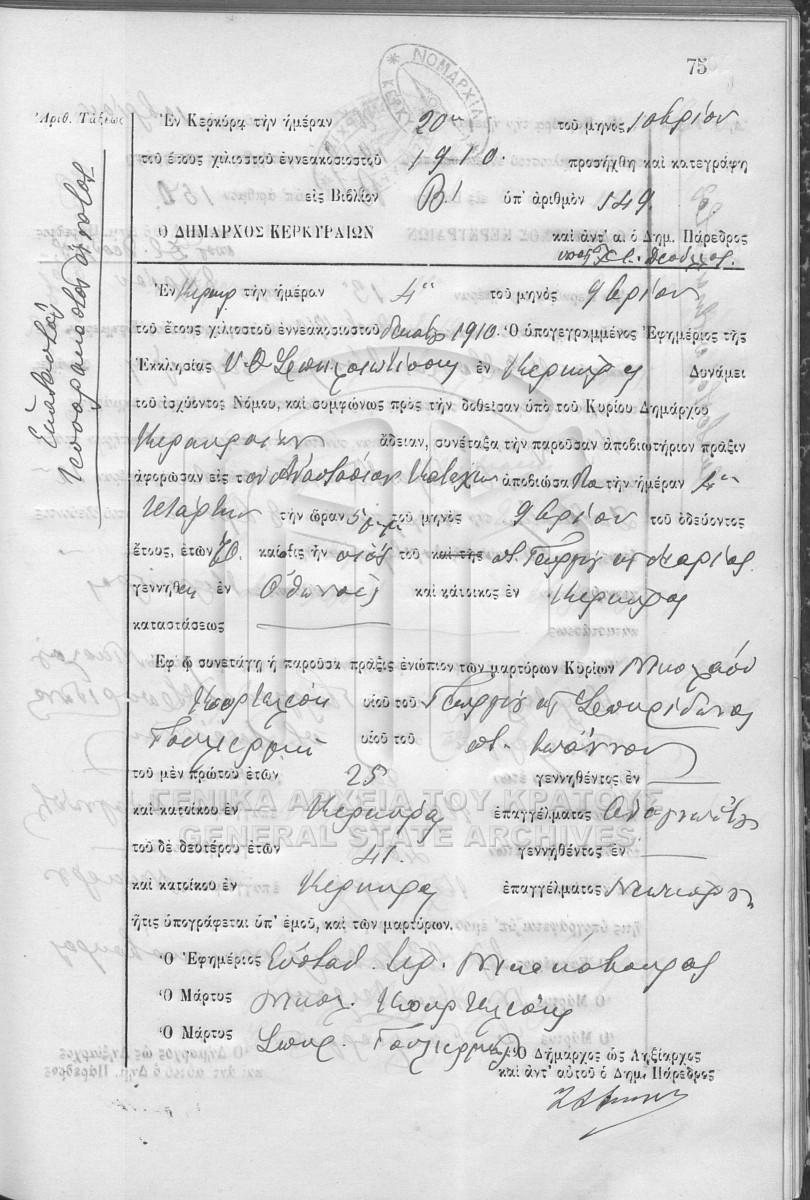 75
Ἀριθ. Τάξεως
Ἑκατοστὸν
τεσσαρακοστὸν
ΝΟΜΑΡΧΙΑ
Ἐν Κερκύρᾳ τὴν ἡμέραν 20ην τοῦ μηνὸς 10βρίου
τοῦ ἔτους χιλιοστοῦ ἐννεακοσιοστοῦ 1910. προσήχθη καὶ κατεγράφη
εἰς Βιβλίον Β! ὑπ' ἀριθμὸν 149.
Ο ΔΗΜΑΡΧΟΣ ΚΕΡΚΥΡΑΙΩΝ καὶ ἀντ' αὐ. ὁ Δημ. Πάρεδρος
Ἐν Κερκύρ τὴν ἡμέραν 4ην τοῦ μηνὸς 9βρίου
τοῦ ἔτους χιλιοστοῦ ἐννεακοσιοστοῦ δεκάτ 1910. Ὁ ὑπογεγραμμένος Ἐφημέριος τῆς
Ἐκκλησίας Υ. Θ. Σπηλαιωτίσσης ἐν Κερκύρᾳ Δυνάμει
τοῦ ἰσχύοντος Νόμου, καὶ συμφώνως πρὸς τὴν δοθεῖσαν ὑπὸ τοῦ Κυρίου Δημάρχου
Κερκυραίων ἄδειαν, συνέταξα τὴν παροῦσαν ἀποβιωτήριον πρᾶξιν
ἀφορῶσαν εἰς τὸν Ἀναστάσιον Κατέχην ἀποβιώσαντα τὴν ἡμέραν 4ην
τετάρτην τὴν ὥραν 5 μμ τοῦ μηνὸς 9βρίου τοῦ ὁδεύοντος
ἔτους, ἐτῶν 70. καὶ ὅστις ἦν υἱὸς τοῦ καὶ τῆς π. Γεωργίου κ Μαρίας
γεννηθεὶς ἐν Ὀθωνοὺς καὶ κάτοικος ἐν Κερκύρας
καταστάσεως
Ἐφ' ᾧ συνετάγη ἡ παροῦσα πρᾶξις ἐνώπιον τῶν μαρτύρων Κυρίων Νικολάου
Κουρτελέση υἱοῦ τοῦ Γεωργίου κ Σπυρίδωνος
Γουλιερμῆ υἱοῦ τοῦ π. Ἰωάννου
τοῦ μὲν πρώτου ἐτῶν 25 γεννηθέντος ἐν
καὶ κατοίκου ἐν Κερκύρᾳ ἐπαγγέλματος Ἀναγνώστ
τοῦ δὲ δευτέρου ἐτῶν 41. γεννηθέντος ἐν
καὶ κατοίκου ἐν Κερκύρᾳ ἐπαγγέλματος
ἥτις ὑπογράφεται ὑπ' ἐμοῦ, καὶ τῶν μαρτύρων.
Ὁ Ἐφημέριος Εὐσταθ. Ἱερ.
Ὁ Μάρτυς Νικολ. Κουρτελέσης
Ὁ Μάρτυς Σπυρ. Γουλιερμῆς
Ὁ Δήμαρχος ὡς Ληξίαρχος
καὶ ἀντ' αὐτοῦ ὁ Δημ. Πάρεδρος
ΓΕΝΙΚΑ ΑΡΧΕΙΑ ΤΟΥ ΚΡΑΤΟΥΣ
GENERAL STATE ARCHIVES